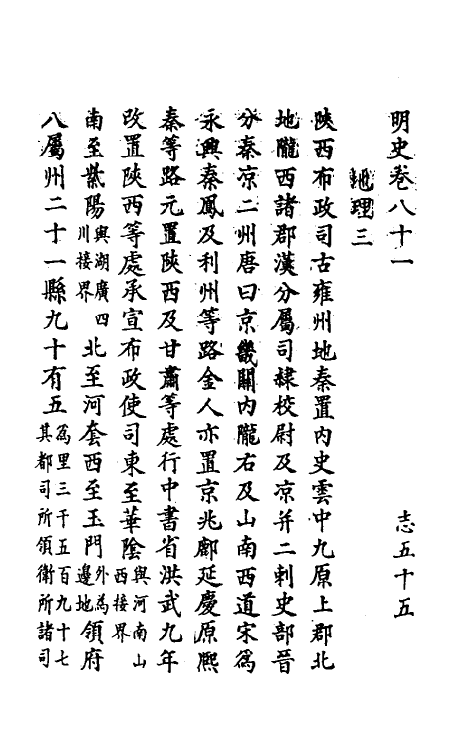 明史卷八十一　志五十五
地理三
陝西布政司古雍州地秦置内史雲中九原上郡北
地隴西諸郡漢分屬司隸校尉及凉并二刺史部晉
分秦凉二州唐曰京畿關内隴右及山南西道宋爲
永興秦鳳及利州等路金人亦置京兆鄜延慶原熙
秦等路元置陝西及甘肅等處行中書省洪武九年
改置陝西等處承宣布政使司東至華陰與河南山西接界
南至紫陽與湖廣四川接界北至河套西至玉門外為邊地領府
八屬州二十一縣九十有五為里三千五百九十七其都司所領衛所諸司